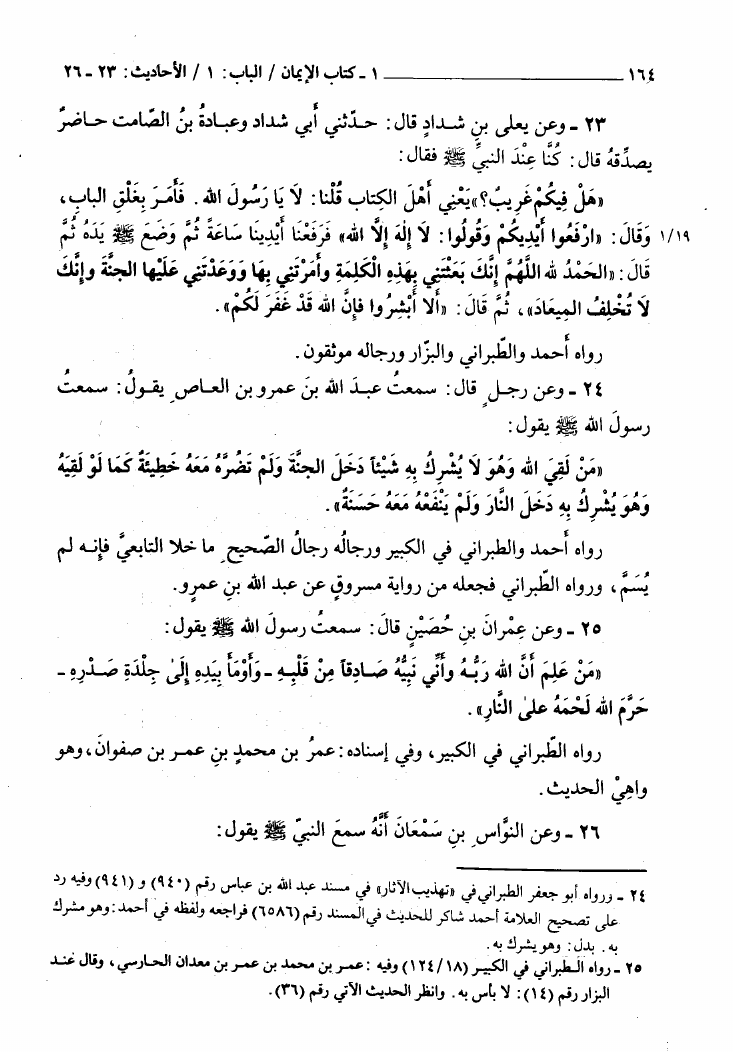 ١٦٤ ــــــــــــــــــــــــــــــــــــــــــــ ١ - كتاب الإيمان / الباب: ١ / الأحاديث: ٢٣ - ٢٦
٢٣ - وعن يعلى بنِ شـدادٍ قال: حـدّثني أبي شداد وعبادةُ بنُ الصّامت حـاضـرٌ
يصدِّقهُ قال: كُنَّا عِنْدَ النبيِّ ﷺ فقال:
«هَلْ فِيكُمْ غَرِيبٌ؟» يَعْنِي أَهْلَ الكِتاب قُلْنا: لَا يَا رَسُولَ الله. فَأَمَـرَ بِغَلْقِ البابِ،
١/١٩ وَقَالَ: «ارْفَعُوا أَيْدِيكُمْ وَقُولُوا: لَا إِلٰهَ إِلَّا الله» فَرَفَعْنَا أَيْدِينَا سَاعَةً ثُمَّ وَضَعَ ﷺ يَدَهُ ثُمَّ
قَالَ: «الحَمْدُ لله اللَّهُمَّ إِنَّكَ بَعَثْتَنِي بِهَذِهِ الْكَلِمَةِ وأَمَرْتَنِي بِهَا وَوَعَدْتَنِي عَلَيْها الجنَّةَ وإنَّكَ
لَا تُخْلِفُ المِيعَادَ»، ثُمَّ قَالَ: «أَلا أَبْشِرُوا فإِنَّ الله قَدْ غَفَرَ لَكُمْ».
رواه أحمد والطّبراني والبزّار ورجاله موثقون.
٢٤ - وعن رجـلٍ قال: سمعتُ عبدَ الله بنَ عمرو بنِ العـاصِ يقـولُ: سمعتُ
رسولَ الله ﷺ يقول:
«مَنْ لَقِيَ الله وَهُوَ لَا يُشْرِكُ بِهِ شَيْئاً دَخَلَ الجنَّةَ وَلَمْ تَضُرَّهُ مَعَهُ خَطِيئَةٌ كَمَا لَوْ لَقِيَهُ
وَهُوَ يُشْرِكُ بِهِ دَخَلَ النَّارَ وَلَمْ يَنْفَعْهُ مَعَهُ حَسَنَةٌ».
رواه أحمد والطبراني في الكبير ورجالُه رجالُ الصّحيحِ ما خلا التابعيَّ فإنـه لم
يُسَمَّ، ورواه الطّبراني فجعله من رواية مسروقٍ عن عبد الله بنِ عمرٍو.
٢٥ - وعن عِمْرانَ بنِ حُصَيْنٍ قالَ: سمعتُ رسولَ الله ﷺ يقول:
«مَنْ عَلِمَ أَنَّ الله رَبُّـهُ وأَنِّي نَبِيُّهُ صَـادِقاً مِنْ قَلْبِـهِ - وَأَوْمَأَ بِيَدِهِ إِلَىٰ جِلْدَةِ صَـدْرِهِ -
حَرَّمَ الله لَحْمَهُ علىٰ النَّارِ».
رواه الطّبراني في الكبير، وفي إسناده: عمرُ بن محمدِ بنِ عمـر بن صفوانَ، وهو
واهِيْ الحديث.
٢٦ - وعن النوّاسِ بنِ سَمْعَانَ أَنَّهُ سمعَ النبيّ ﷺ يقول:
٢٤ - ورواه أبو جعفر الطبراني في «تهذيب الآثار» في مسند عبد الله بن عباس رقم (٩٤٠) و (٩٤١) وفيه رد
على تصحيح العلامة أحمد شاكر للحديث في المسند رقم (٦٥٨٦) فراجعه ولفظه في أحمد: وهو مشرك
به. بدل: وهو يشرك به.
٢٥ - رواه الطبراني في الكبير (١٢٤/١٨) وفيه: عمر بن محمد بن عمر بن معدان الحارسي، وقال عنـد
البزار رقم (١٤): لا بأس به. وانظر الحديث الآتي رقم (٣٦).